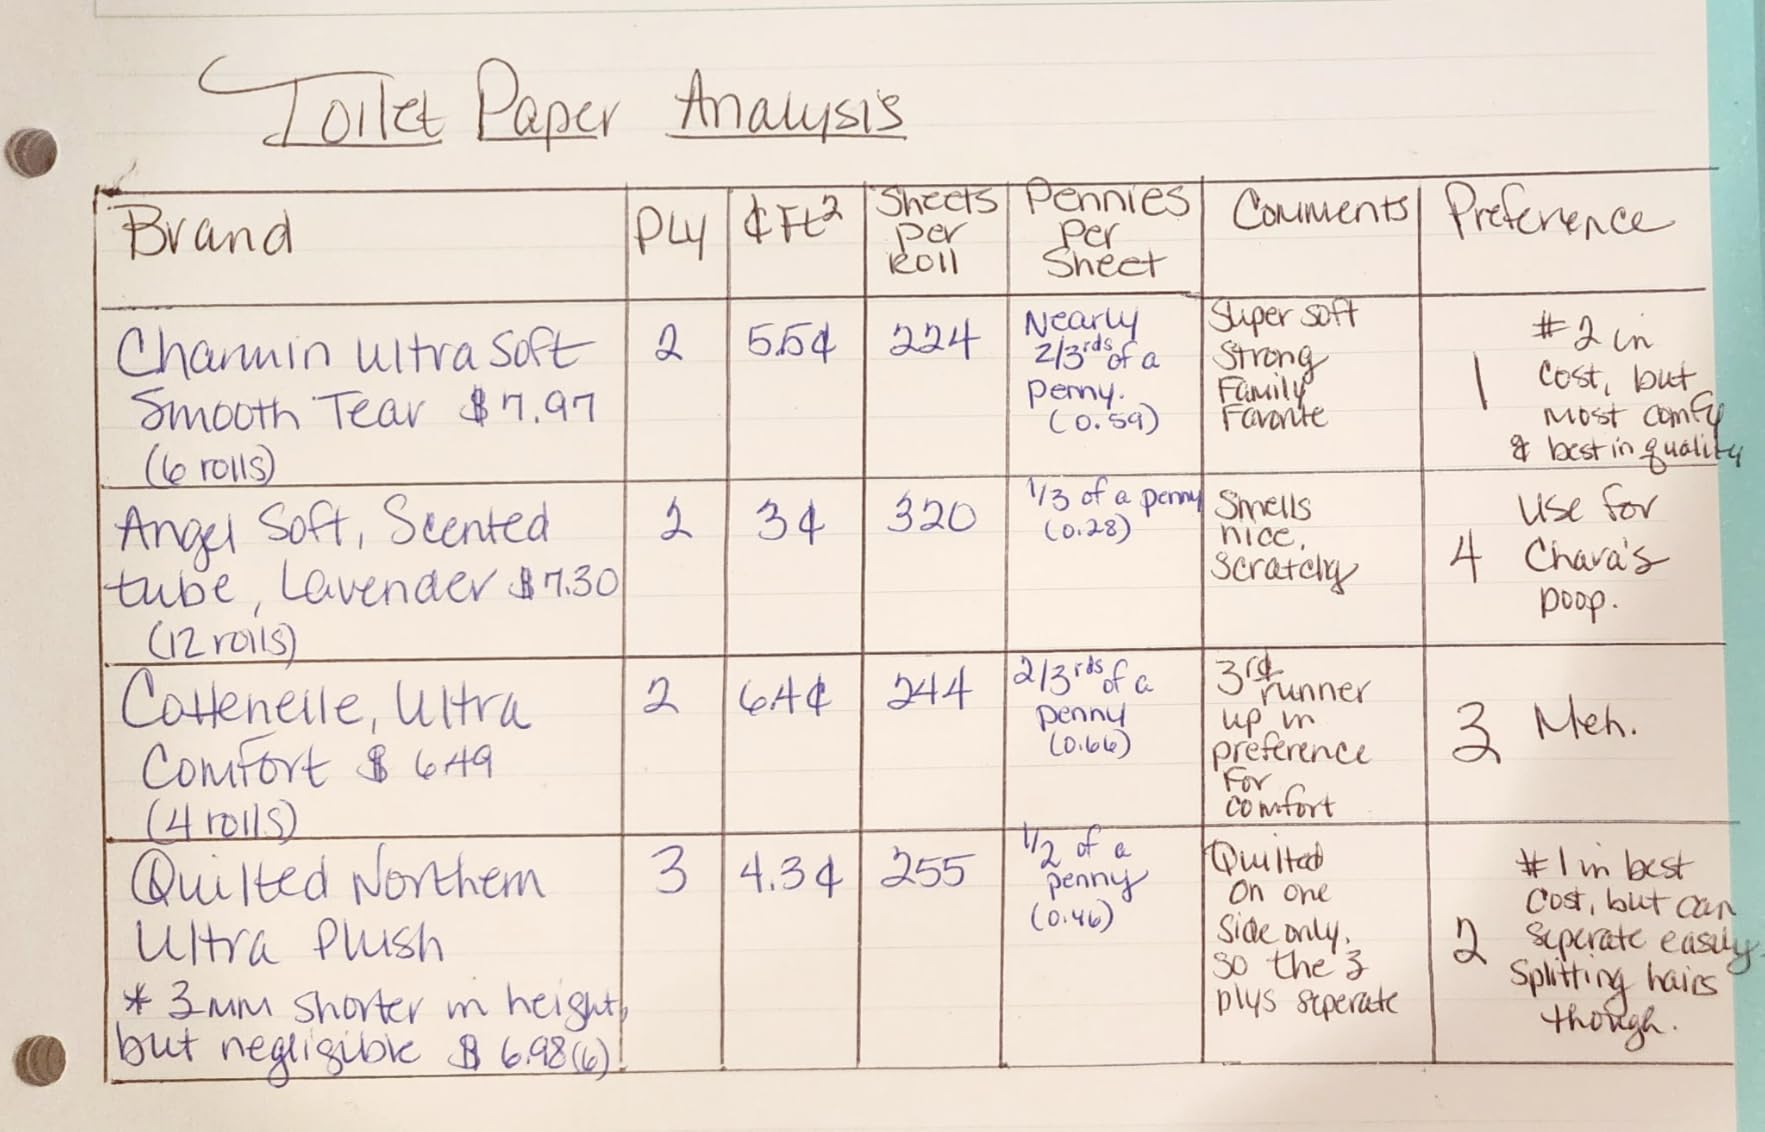 Toilet Paper Analysis
Brand
Ply
¢ Ft²
Sheets
per
Roll
Pennies
Per
Sheet
Comments
Preference
Charmin Ultra Soft
Smooth Tear $7.97
(6 rolls)
2
5.5¢
224
Nearly
2/3rds of a
penny.
(0.59)
Super soft
Strong
Family
Favorite
1
#2 in
cost, but
most comfy
& best in quality
Angel Soft, Scented
tube, Lavender $7.30
(12 rolls)
2
3¢
320
1/3 of a penny
(0.28)
Smells
nice,
scratchy
4
Use for
Chava's
poop.
Cottenelle, Ultra
Comfort $6.49
(4 rolls)
2
6.4¢
244
2/3rds of a
penny
(0.66)
3rd
runner
up in
preference
For
comfort
3
Meh.
Quilted Northern
Ultra Plush
* 3 mm shorter in height,
but negligible $6.98(6)
3
4.3¢
255
1/2 of a
penny
(0.46)
Quilted
on one
side only,
so the 3
plys seperate
2
#1 in best
cost, but can
seperate easily
splitting hairs
though.